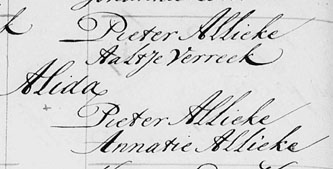 Pieter Allieke
Aaltje Verreek
Alida
Pieter Allieke
Annatie Allieke